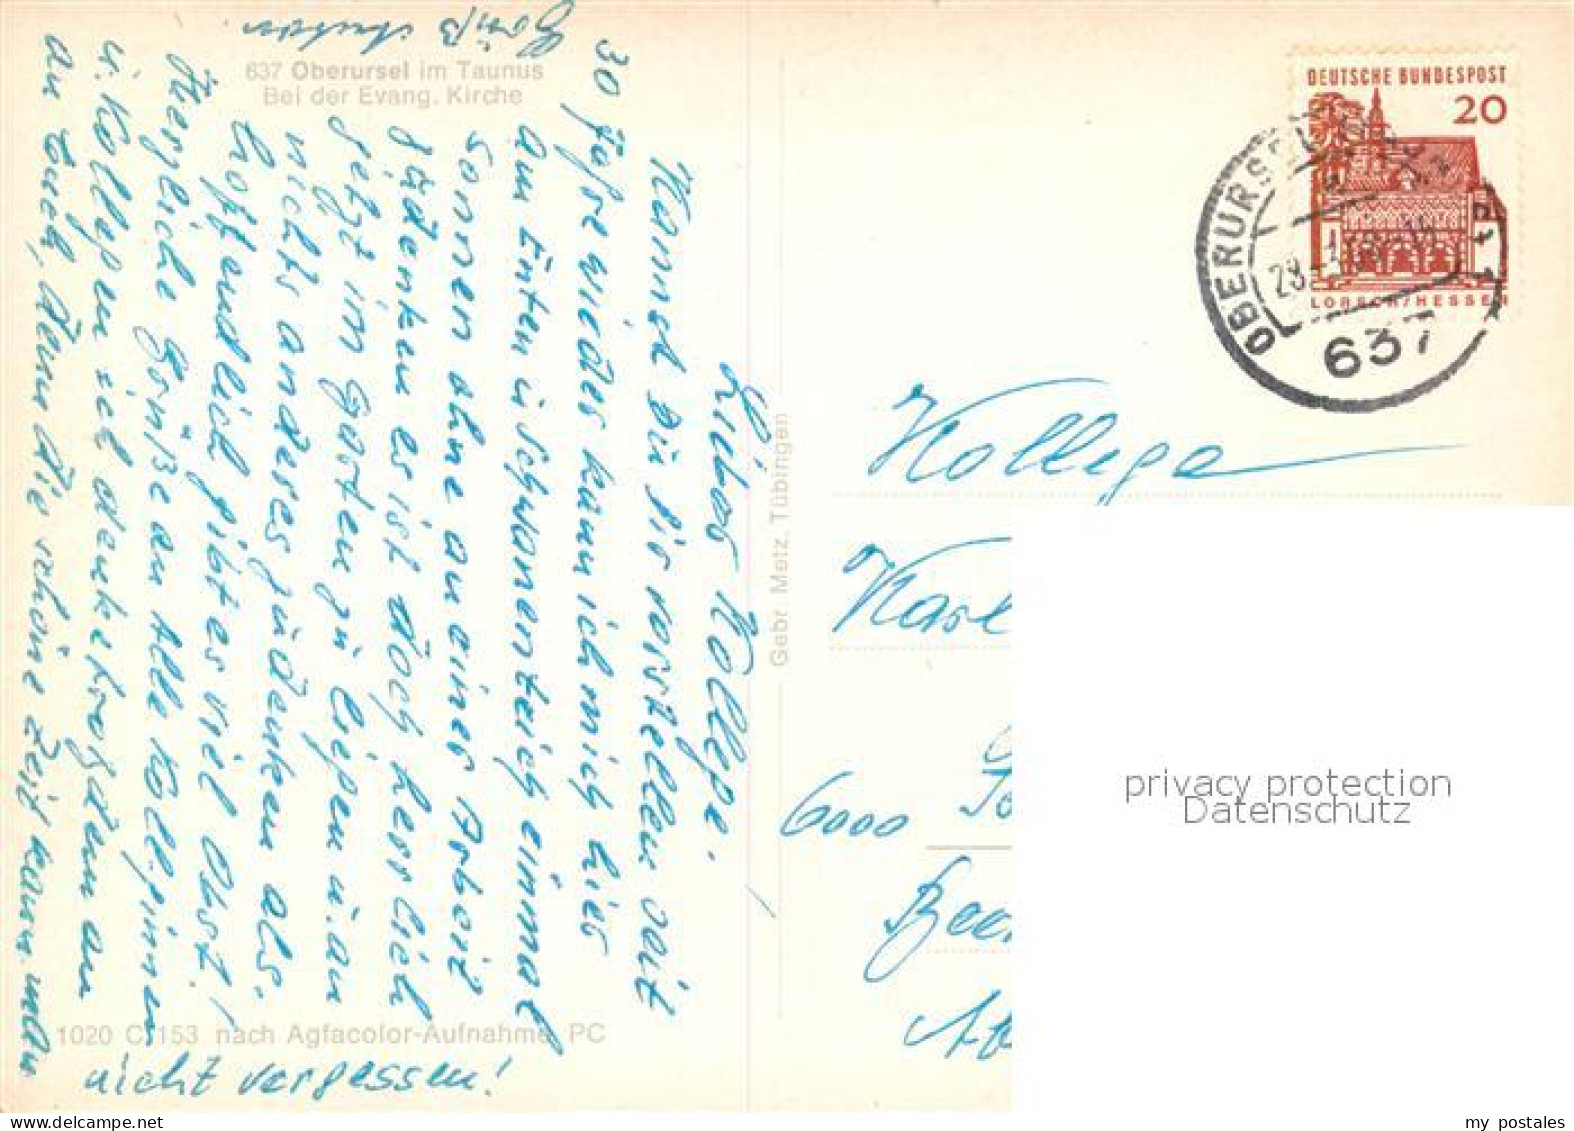 637 Oberursel im Taunus
Bei der Evang. Kirche
Lieber Kollege.
Kannst Du Dir vorstellen seit
30 Jahre wieder kann ich mich hier
am Enten u Schwanenteich einmal
sonnen ohne an einer Arbeit
zu denken es ist doch herrlich
jetzt im Garten zu liegen u. an
nichts anderes zu denken als.
hoffendlich gibt es viel Obst!
Herzliche Grüße an Alle Kolleginnen
u. Kollegen ich denke trotzdem an
an Euch, denn die schöne Zeit kann man
nicht vergessen!
Gruß
Gebr. Metz, Tübingen
1020 C 153 nach Agfacolor-Aufnahme PC
DEUTSCHE BUNDESPOST
20
LORSCH/HESSEN
OBERURSEL
637
Kollega
Karl
6000
privacy protection
Datenschutz
my postales